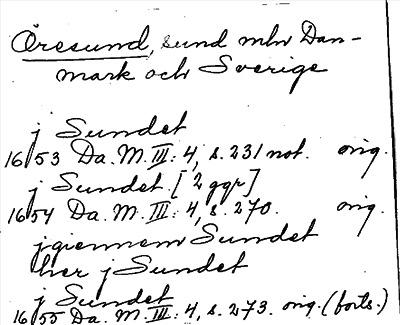 Öresund, sund mln Dan-
mark och Sverige
j Sundet
1653 Da. M. III: 4, s. 231 not. orig.
j Sundet [2 ggr]
1654 Da. M. III: 4, s. 270. orig.
jgiennem Sundet
her j Sundet
j Sundet
1655 Da. M. III: 4, s. 273. orig. (forts.)